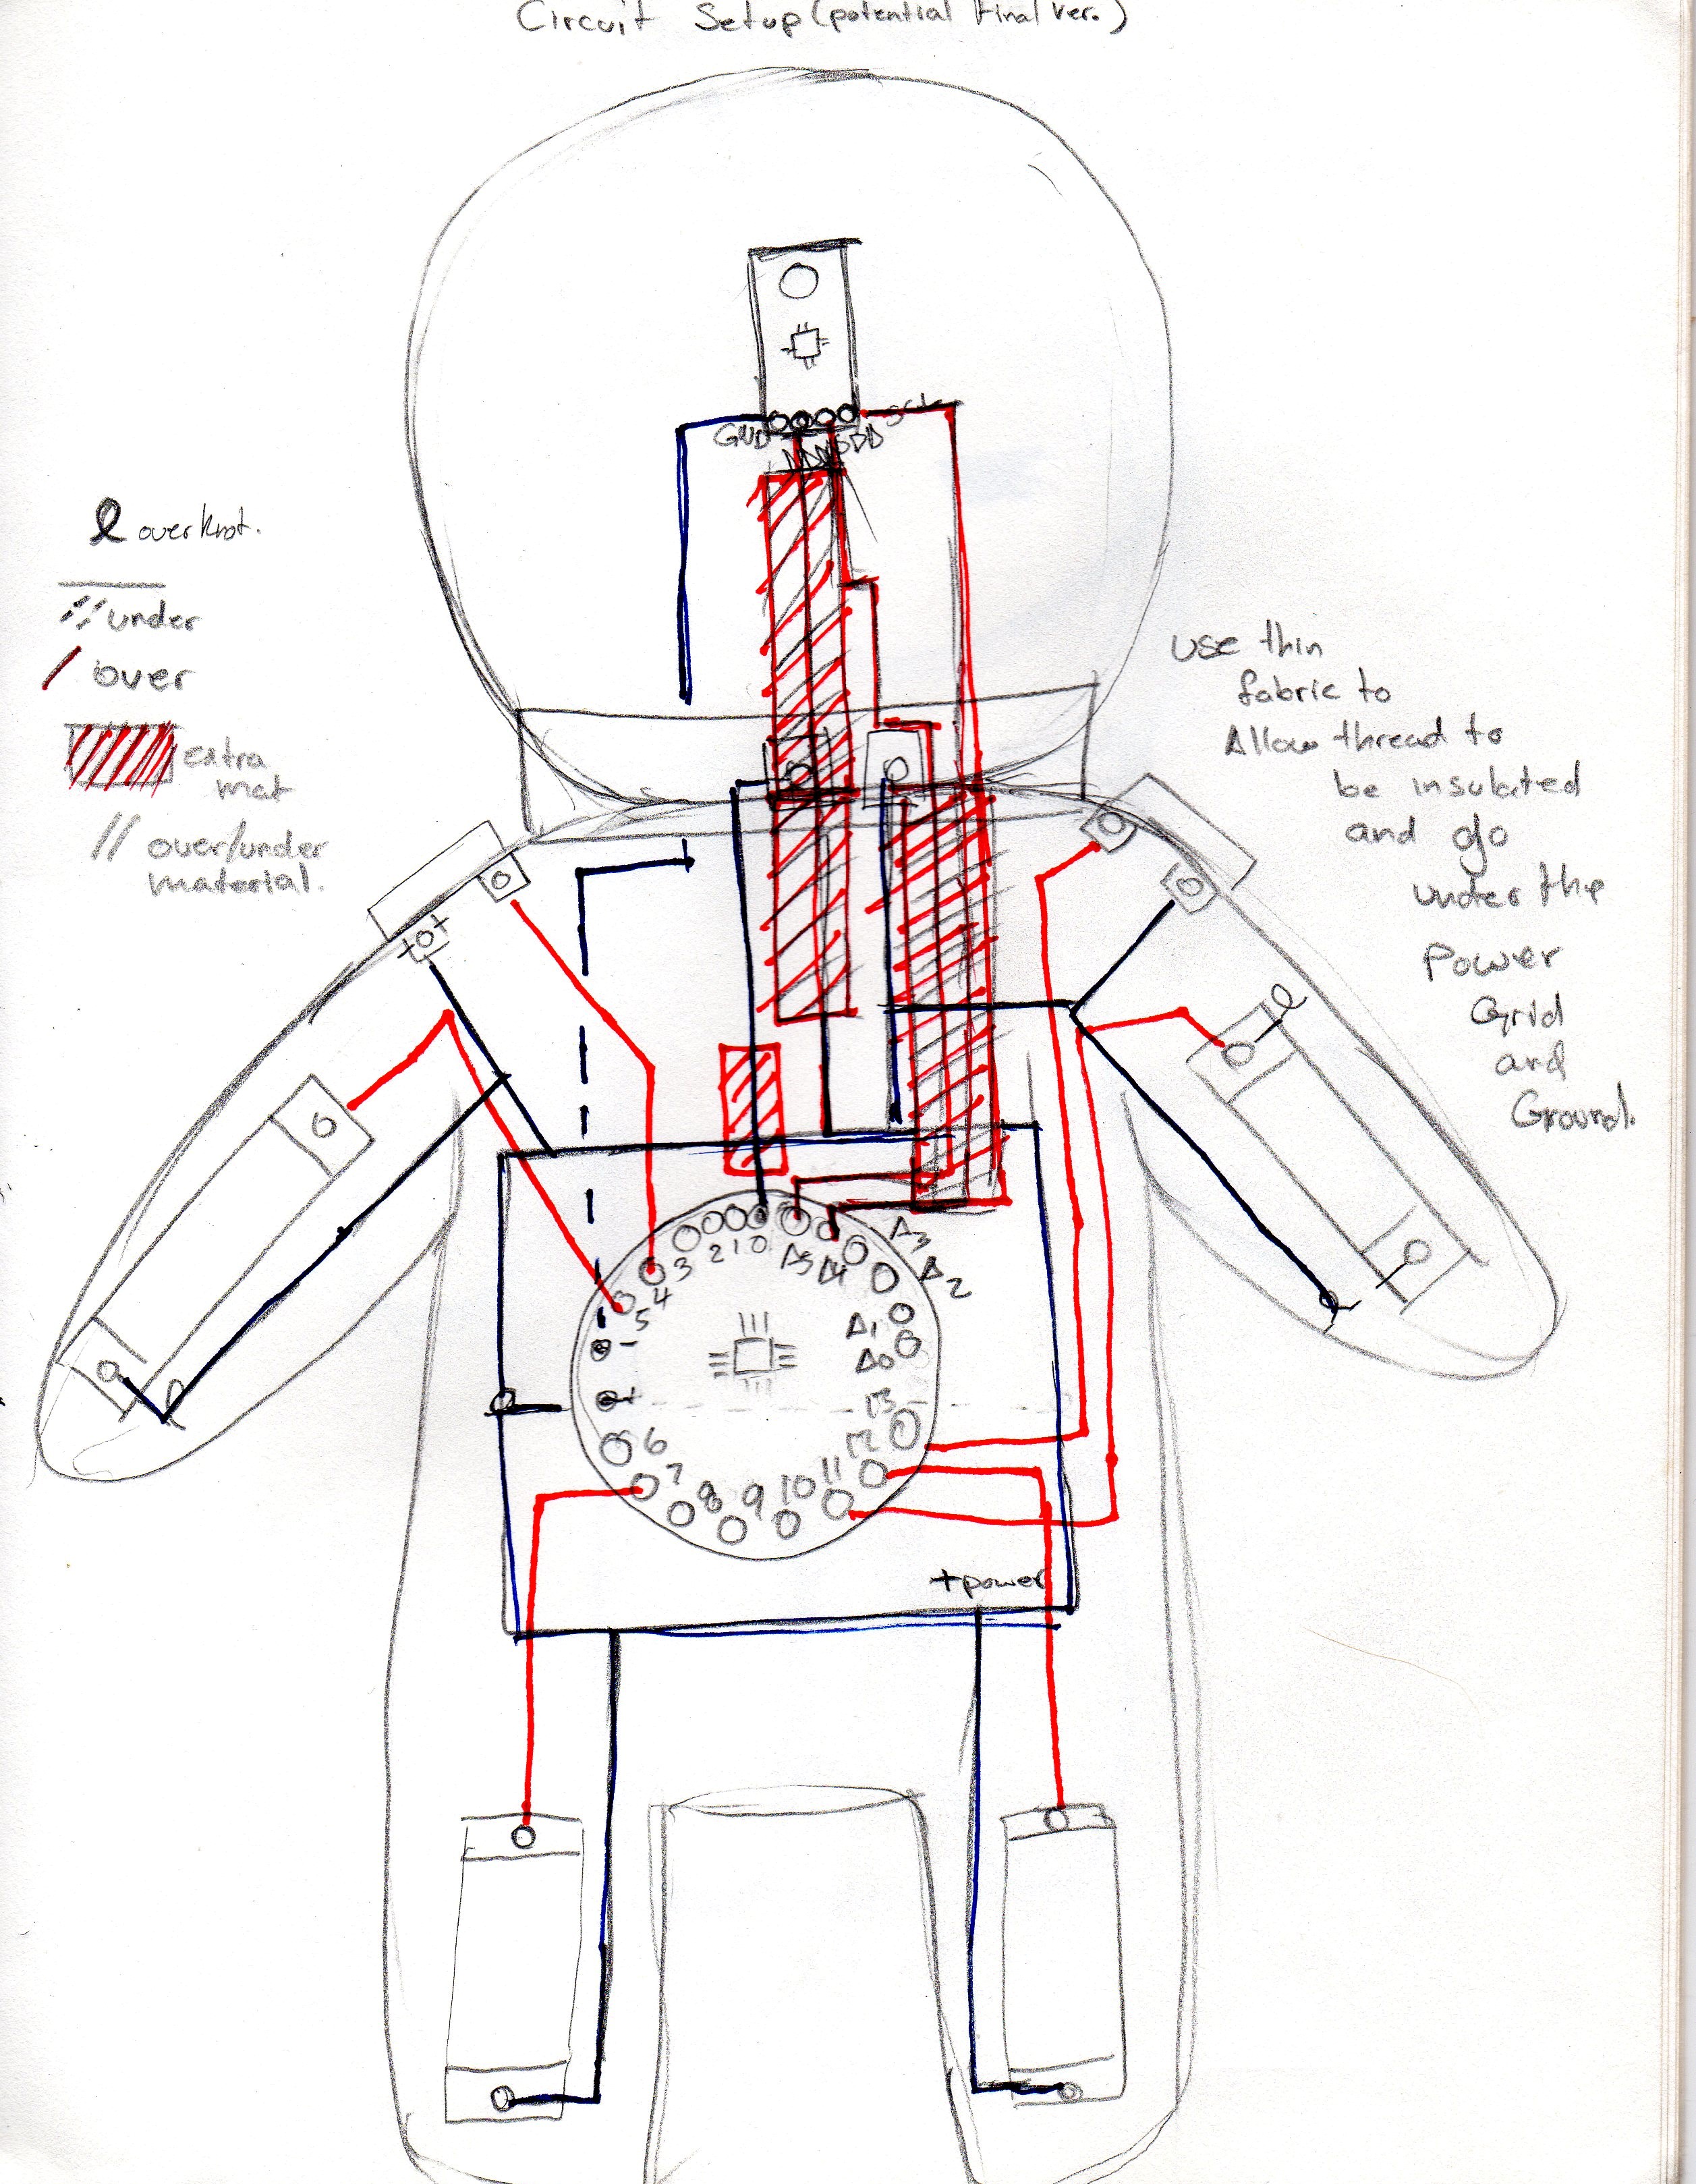 Circuit Setup (potential final ver.)
GND
overknot.
under
over
extra
mat
over/under
material.
use thin
fabric to
Allow thread to
be insulated
and go
under the
Power
Grid
and
Ground.
3 2 1 0 A5 A4 A3 A2
4
5
-
+
A1
A0
13
12
6
7
8 9 10 11
+power